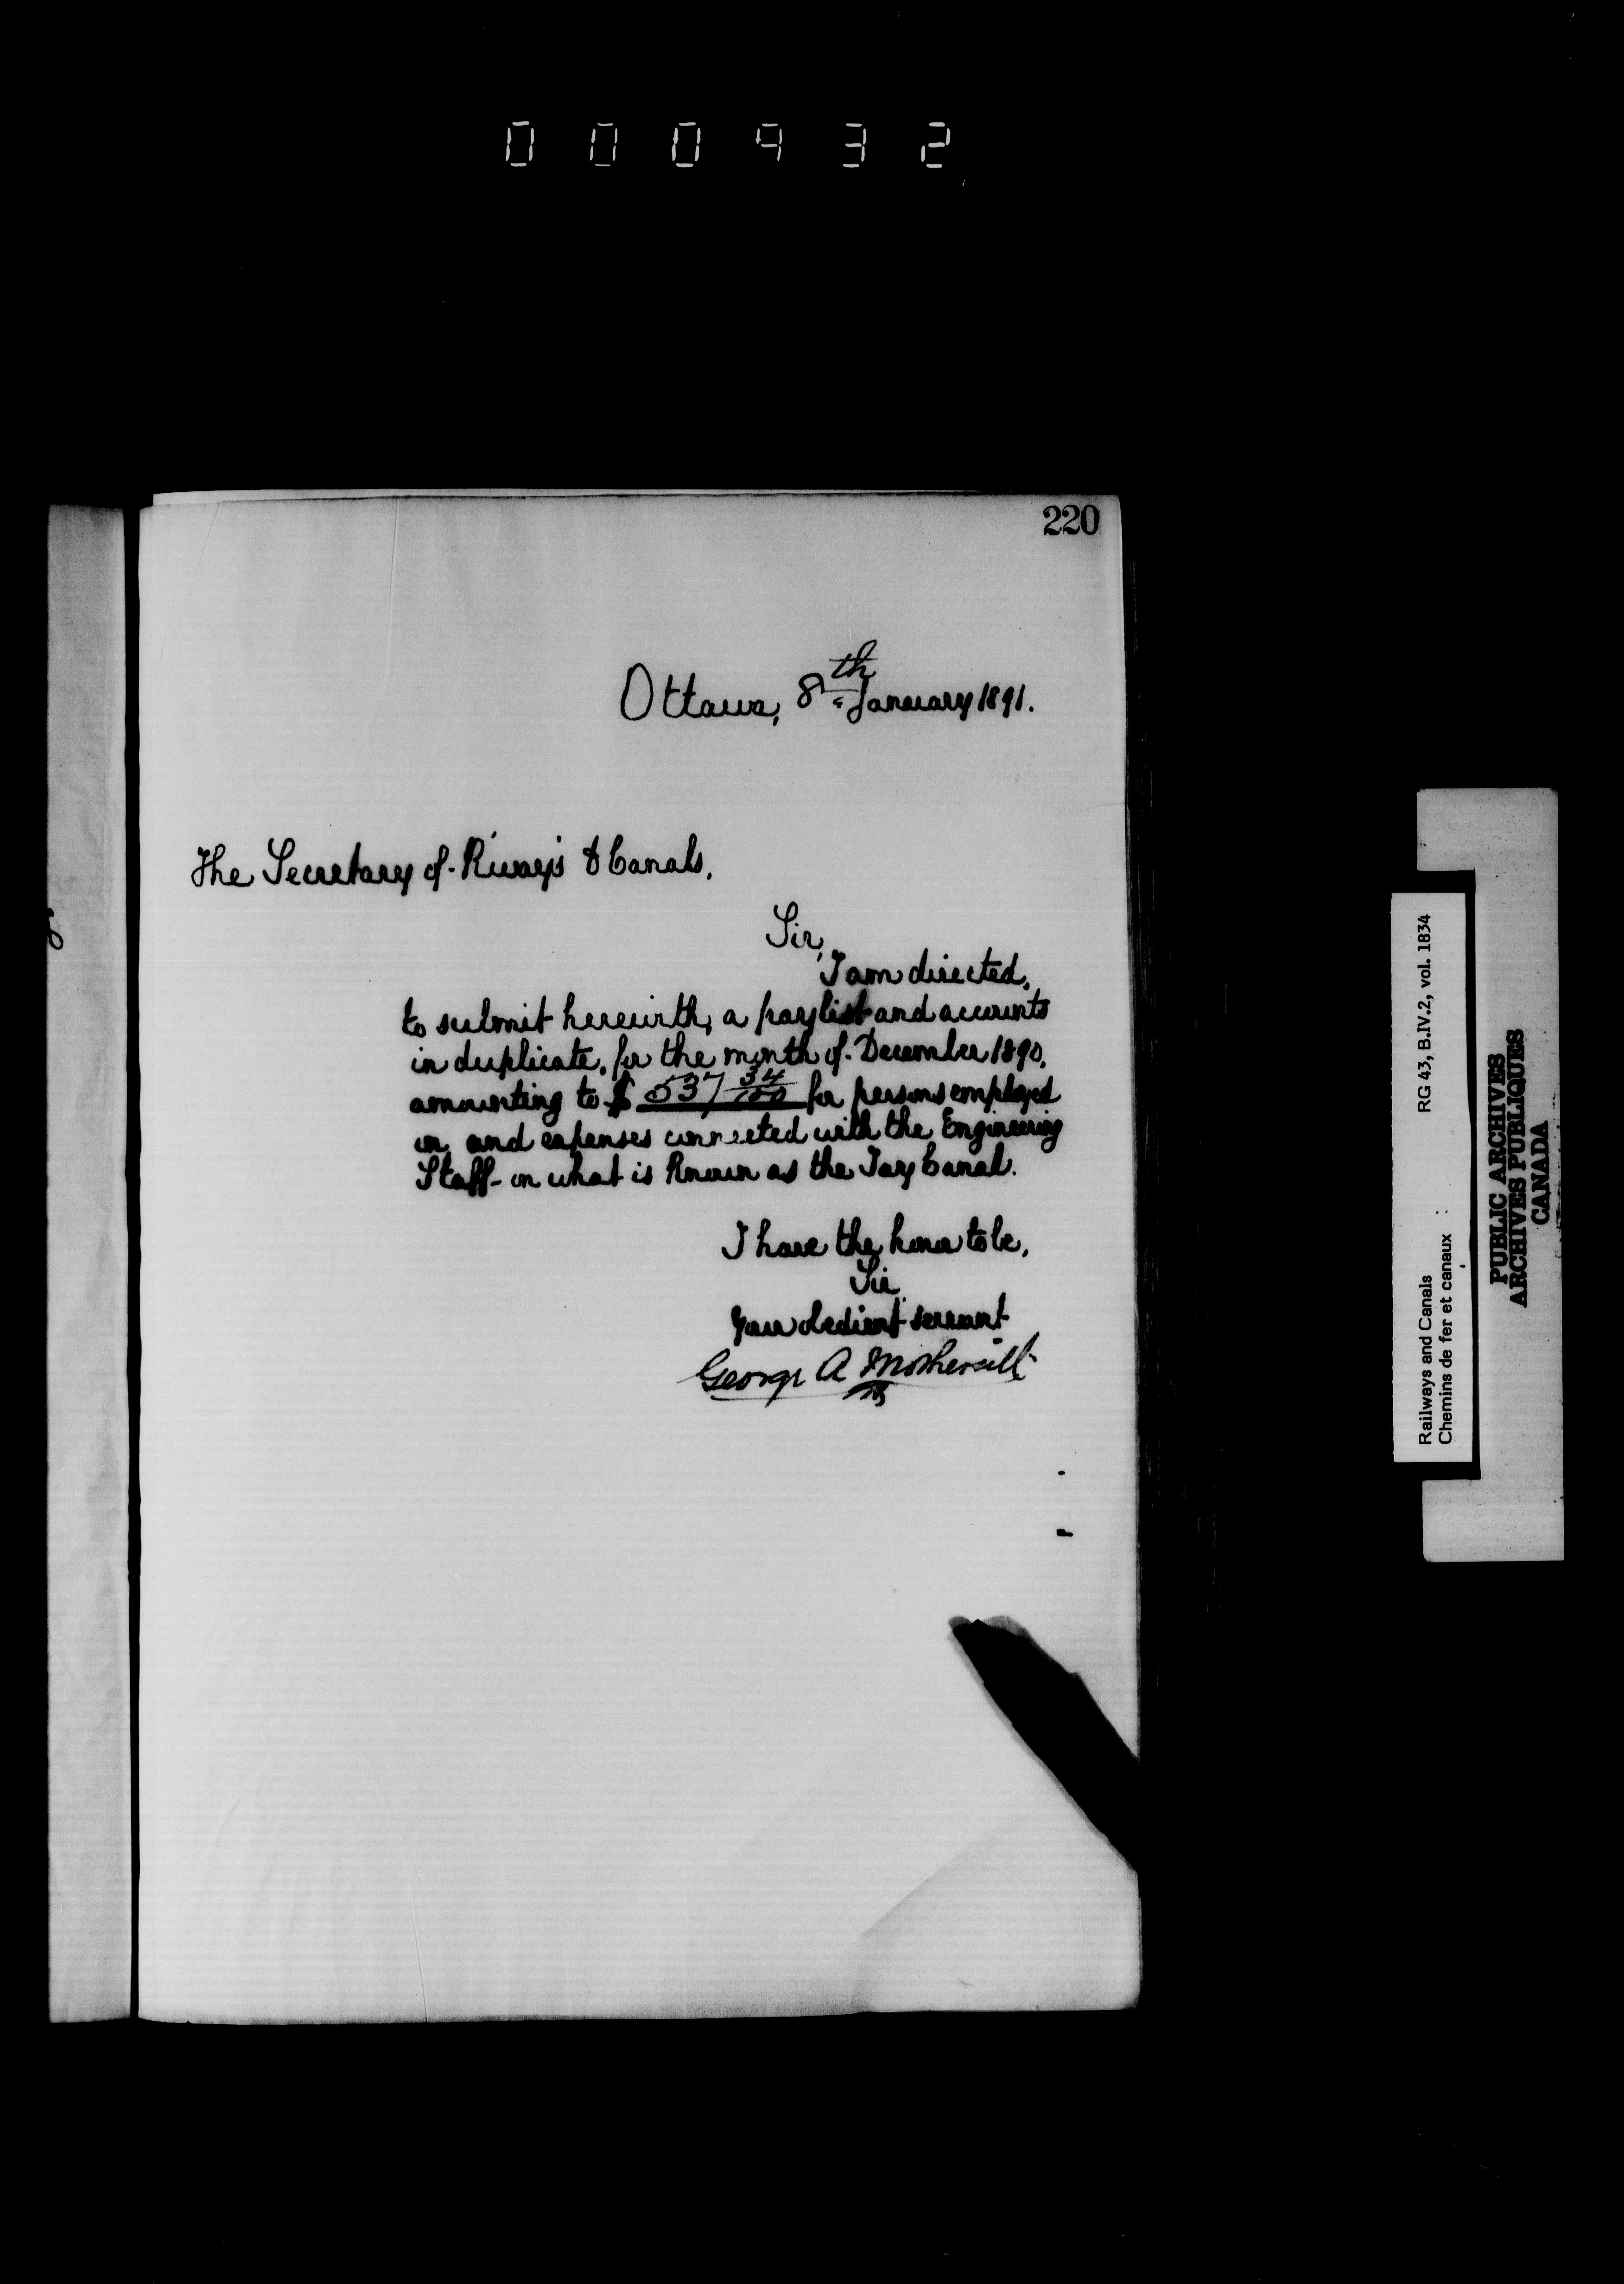 000932
220
Ottawa, 8th January 1891.
The Secretary of R'ways & Canals.
Sir,
I am directed,
to submit herewith, a paylist and accounts
in duplicate, for the month of December 1890,
amounting to $ 537 34/100 for persons employed
on and expenses connected with the Engineering
Staff on what is known as the Tay Canal.
I have the honor to be,
Sir
Your obedient servant
George A Mothersill
RG 43, B.IV.2, vol. 1834
Railways and Canals
Chemins de fer et canaux
PUBLIC ARCHIVES
ARCHIVES PUBLIQUES
CANADA